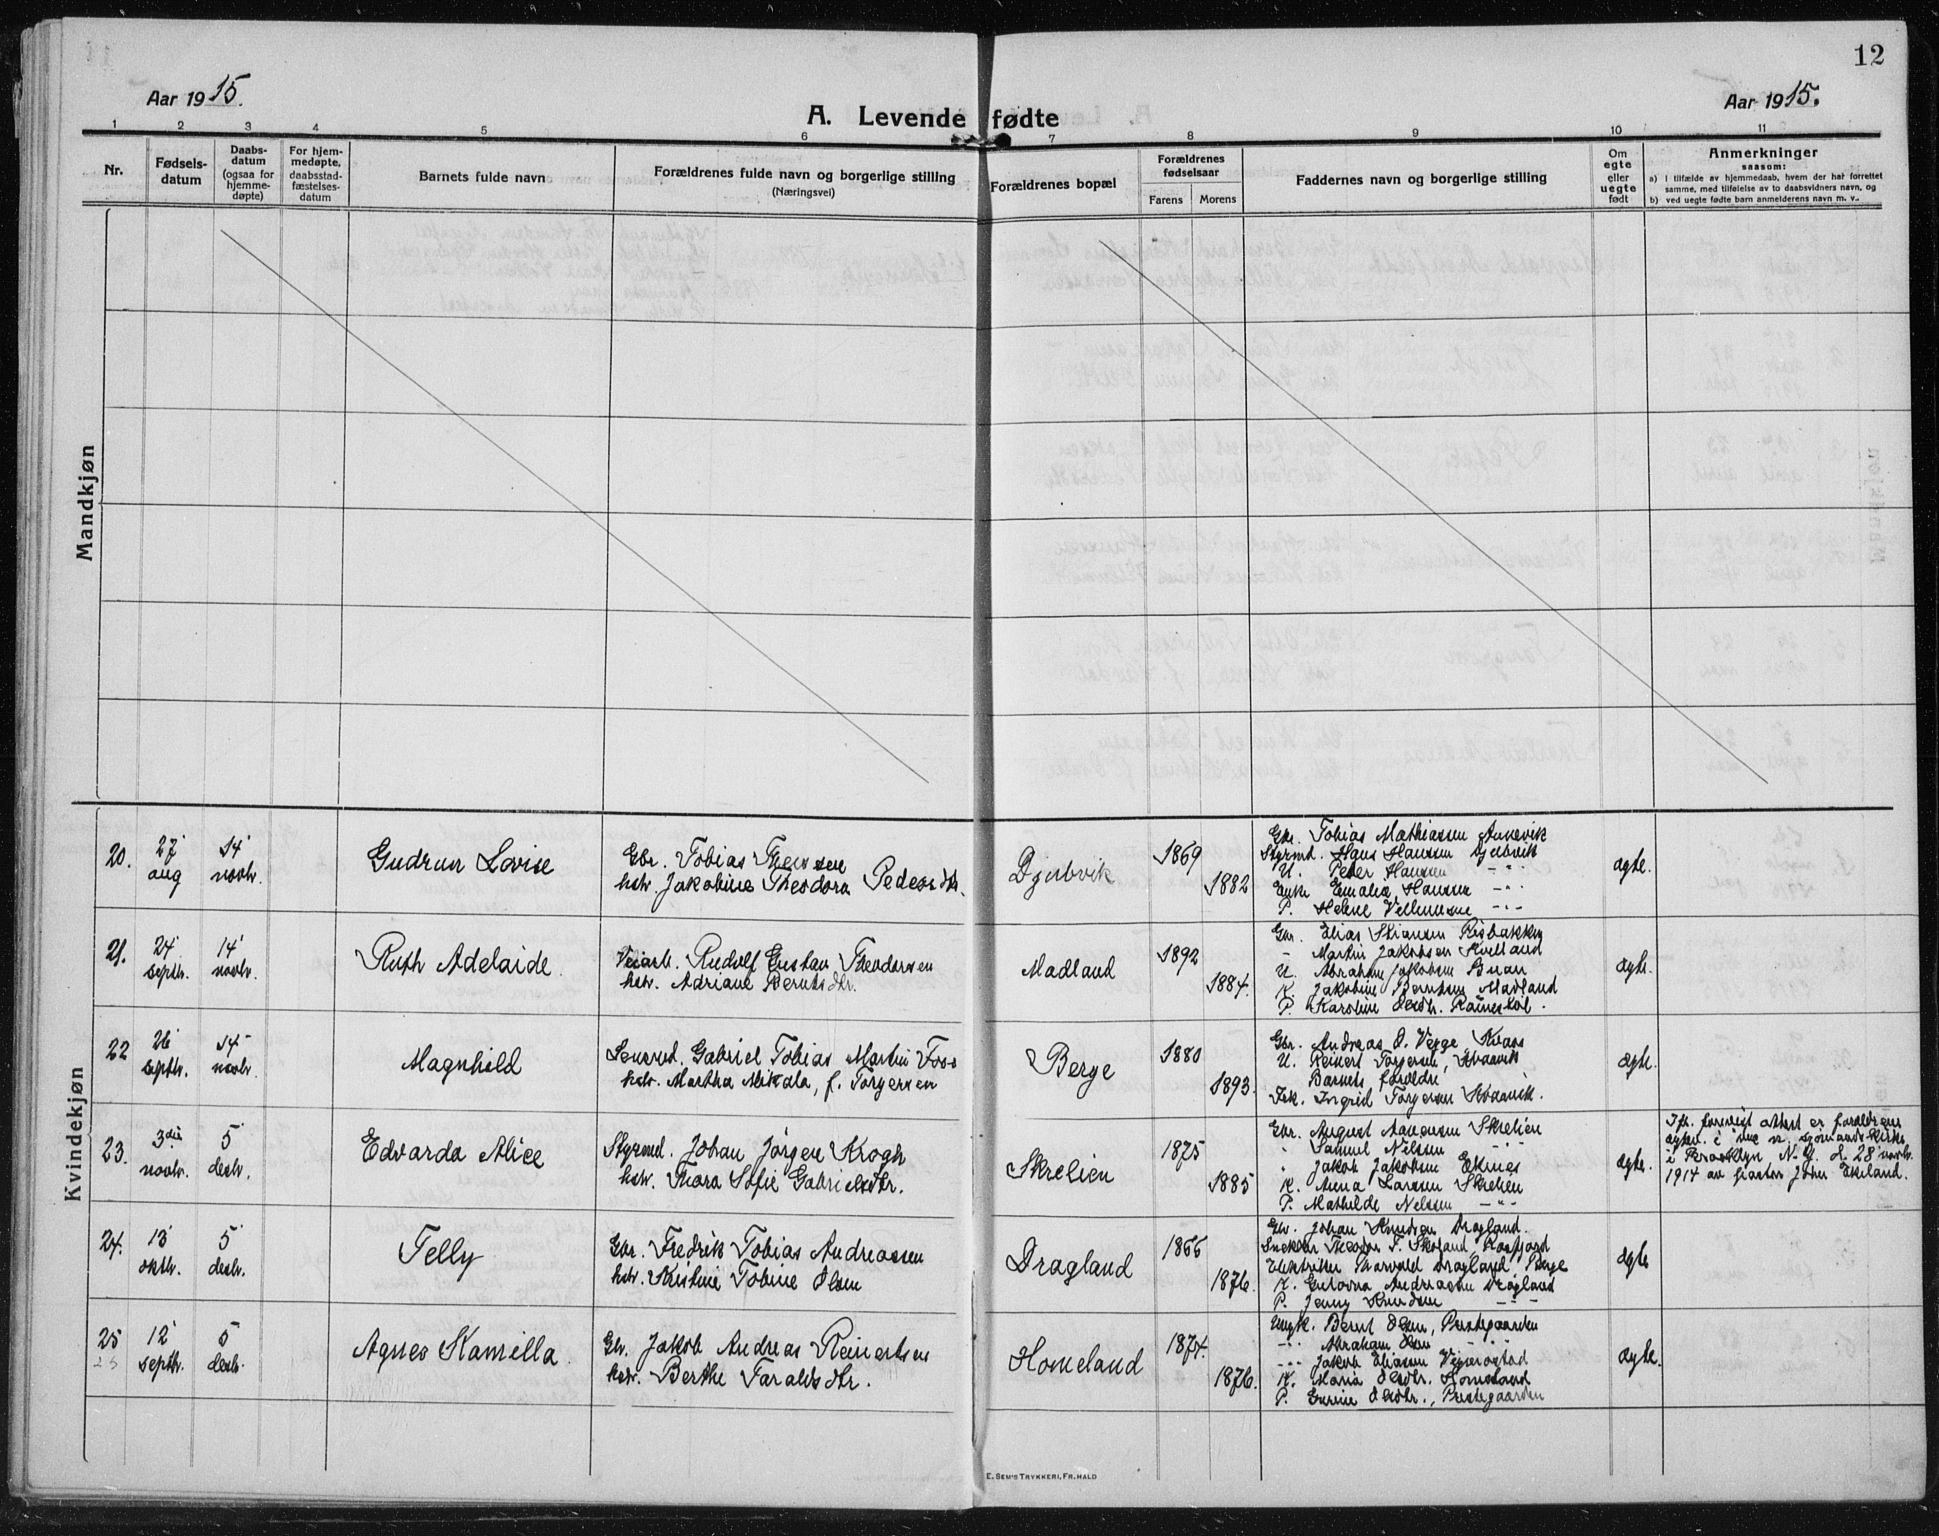 12
Aar 1915.
A. Levende fødte
Aar 1915.
1 2 3 4 5 6 7 8 9 10 11
Nr.
Fødsels-
datum
Daabs-
datum
(ogsaa for
hjemme-
døpte)
For hjem-
medøpte,
daabsstad-
fæstelses-
datum
Barnets fulde navn
Forældrenes fulde navn og borgerlige stilling
(Næringsvei)
Forældrenes bopæl
Forældrenes
fødselsaar
Farens Morens
Faddernes navn og borgerlige stilling
Om
egte
eller
uegte
født
Anmerkninger
saasom:
a) I tilfælde av hjemmedaab, hvem der har forrettet
samme, med tilføielse av to daabsvidners navn, og
b) ved uegte fødte barn anmelderens navn m. v..
Mandkjøn
Kvindekjøn
20.
27
aug
14
novbr.
Gudrun Lovise
Gbr. Tobias
hstr. Jakobine Theodora
Djubvik
1869
1882
Gbr. Tobias Mathiassen Aanevik
Styrmd. Hans Hanssen Djubvik
U. Peter Hansen -"-
Enke Emalia Hanssen -"-
P. Helene -"-
ægte.
21.
24
septbr.
14
novbr.
Ruth Adelaide
Veiarb. Rudolf Gustav Theodorsen
hstr. Adriane Berntsdtr.
Madland
1892
1884.
Gbr. Elias Stiansen Risbakken
- Martin Jakobsen Kvelland
U. Abraham Jakobsen
K. Jakobine Berntsen Madland
P. Karoline
ægte.
22
26
septbr.
14
novbr.
Magnhild
Gabriel Tobias Martin Foss
hstr. Martha Mikala, f. Torgersen
Berge
1880
1893.
Gbr. Andreas O. Berge, Kvaas
U. Reinert Torgersen, Kvaavik
Barnets forældre
Frk. Ingrid Torgersen Kvaavik.
ægte.
23.
3die
novbr.
5
decbr.
Edvarda Alice
Styrmd. Johan Jørgen Krogh
hstr. Thora Sofie Gabrielsdtr.
Skrelien
1875
1885
Gbr. August Aanensen Skrelien
" Samuel Nilssen -"-
" Jakob Jakobsen Ekenes
K. Anna Larssen Skrelien
P. Mathilde Nelssen -"-
ægte.
Ifl. forevist attest er forældrene
i den n. sjømandskirke
i Brooklyn N. Y. d. 28 novbr.
1914 av pastor John Ekeland.
24.
13
oktbr.
5
decbr.
Telly
Gbr. Fredrik Tobias Andreassen
hstr. Kristine Tobine Olsen
Dragland
1866
1876.
Gbr. Johan Knudsen Dragland.
Snekker Theodor T. Skoland, Rosfjord
Elektriker Thorvald Dragland, Berge
K. Gustava Andreassen Dragland
P. Jenny Knudsen -"-
ægte
25
12
septbr.
5
decbr.
Agnes Kamilla
Gbr. Jakob Andreas Reinertsen
hstr. Berthe Taraldsdtr.
Homeland
1874.
1876.
Ungk. Bernt Olsen, Prestegaarden
-"- Abraham Olsen -"-
-"- Jakob Eliassen
K. Maria Olsdtr. Homeland
P. Gurine Olsdtr., Prestegaarden
ægte.
E. SEM'S TRYKKERI, FR.HALD